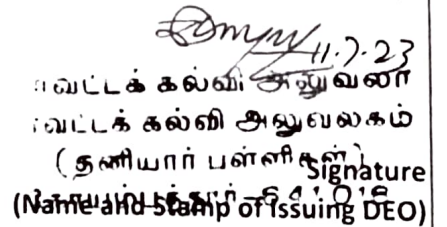 11.7.23
வட்டக் கல்வி அலுவலர்
வட்டக் கல்வி அலுவலகம்
(தனியார் பள்ளிகள்)
Signature
(Name and Stamp of Issuing DEO)